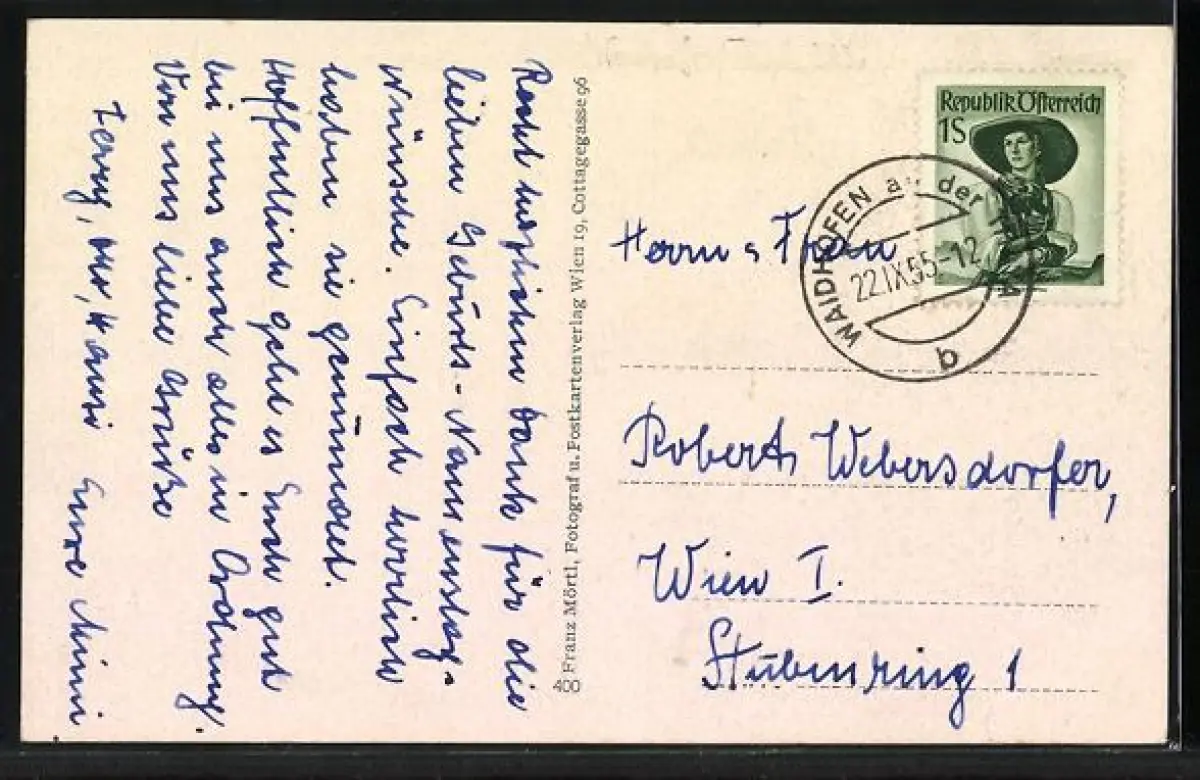 Recht herzlichen Dank für die
lieben Geburts- Namenstag-
wünsche. Einfach herrlich
haben sie gemundet.
Hoffentlich geht es Euch gut
bei uns auch alles in Ordnung.
Von uns liebe Grüße
Hansi Eure Mimi
400 Franz Mörtl, Fotograf u. Postkartenverlag Wien 19, Cottagegasse 96
Republik Österreich
1S
WAIDHOFEN a. der
22.IX.55-12
b
Herrn u Frau
Robert Webersdorfer,
Wien I.
Stubenring 1